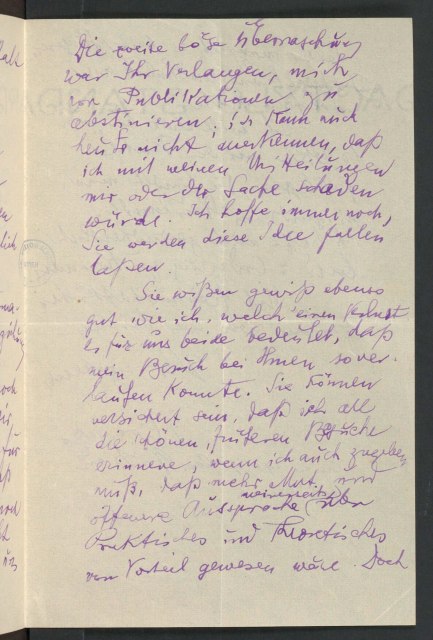 Die zweite böse Überraschung
war Ihr Verlangen, mich
von Publikationen zu
abstinieren. Ich kann auch
heute nicht anerkennen, daß
ich mit meinen Mitteilungen
mir oder der Sache schaden
würde. Ich hoffe immer noch,
Sie werden diese Idee fallen
laßen.
Sie wißen gewiß ebenso
gut wie ich, welch' einen Verlust
es für uns beide bedeutet, daß
mein Besuch bei Ihnen so ver-
laufen konnte. Sie können
versichert sein, daß ich all
die schönen, früheren Besuche
erinnere, wenn ich auch zugeben
muß, daß mehr Mut und
offenere Aussprache meinerseits über
Praktisches und Theoretisches
von Vorteil gewesen wäre. Doch